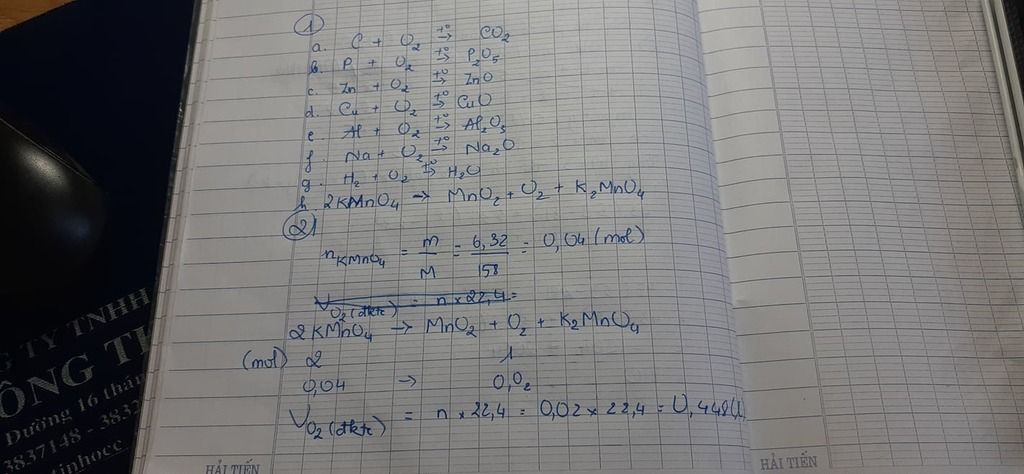 ①
a. C + O₂ →(t⁰) CO₂
b. P + O₂ →(t⁰) P₂O₅
c. Zn + O₂ →(t⁰) ZnO
d. Cu + O₂ →(t⁰) CuO
e. Al + O₂ →(t⁰) Al₂O₃
f. Na + O₂ →(t⁰) Na₂O
g. H₂ + O₂ →(t⁰) H₂O
h. 2KMnO₄ → MnO₂ + O₂ + K₂MnO₄
②
n KMnO₄ = m/M = 6,32/158 = 0,04 (mol)
V O₂ (đktc) = n × 22,4 =
2KMnO₄ → MnO₂ + O₂ + K₂MnO₄
(mol) 2 1
0,04 → 0,0₂
V O₂ (đktc) = n × 22,4 = 0,02 × 22,4 = 0,448 (l)
HẢI TIẾN
HẢI TIẾN
G TY TNHH
ÔNG TH
Đường 16 thán
3837148 - 3832
tinhocc